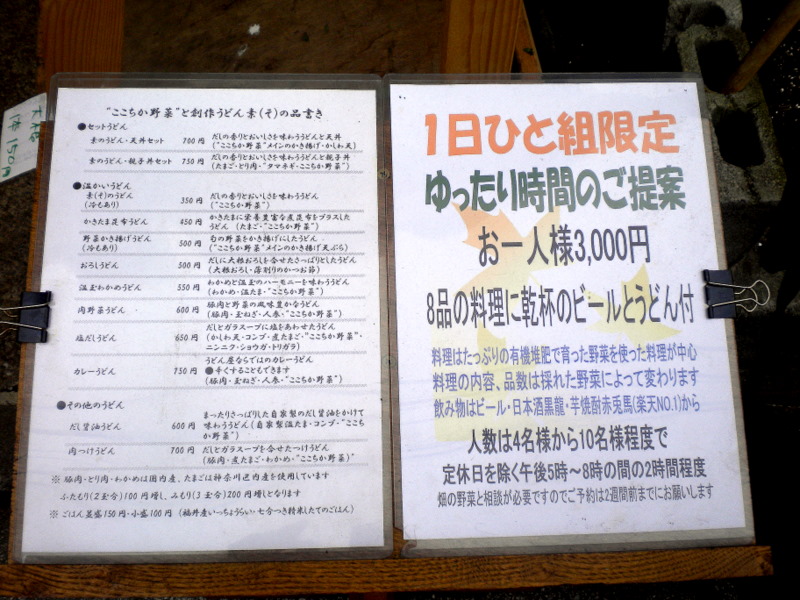 "ここちか野菜"と創作うどん 素(そ)の品書き
●セットうどん
素のうどん・天丼セット 700円 だしの香りとおいしさを味わううどんと天丼
("ここちか野菜"メインのかき揚げ・かしわ天)
素のうどん・親子丼セット 750円 だしの香りとおいしさを味わううどんと親子丼
(たまご・とり肉・"タマネギ・ここちか野菜")
●温かいうどん
素(そ)のうどん 350円 だしの香りとおいしさを味わううどん
(冷もあり) ("ここちか野菜")
かきたま昆布うどん 450円 かきたまに栄養豊富な煮昆布をプラスした
うどん (たまご・"ここちか野菜")
野菜かき揚げうどん 500円 旬の野菜をかき揚げにしたうどん
(冷もあり) ("ここちか野菜"メインのかき揚げ天ぷら)
おろしうどん 500円 だしに大根おろしを合せたさっぱりとしたうどん
(大根おろし・薄削りのかつお節)
温玉わかめうどん 550円 わかめと温玉のハーモニーを味わううどん
(わかめ・温たま・"ここちか野菜")
肉野菜うどん 600円 豚肉と野菜の風味豊かなうどん
(豚肉・玉ねぎ・人参・"ここちか野菜")
塩だしうどん 650円 だしとガラスープに塩をあわせたうどん
(かしわ天・コンブ・煮たまご・"ここちか野菜"・
ニンニク・ショウガ・トリガラ)
カレーうどん 750円 うどん屋ならではのカレーうどん
●辛くすることもできます
(豚肉・玉ねぎ・人参・"ここちか野菜")
●その他のうどん
だし醤油うどん 600円 まったりさっぱりした自家製のだし醤油をかけて
味わううどん(自家製温たま・コンブ・"ここちか
野菜")
肉つけうどん 700円 だしとガラスープを合せたつけうどん
(豚肉・煮たまご・わかめ・"ここちか野菜")
※ 豚肉・とり肉・わかめは国内産、たまごは神奈川県内産を使用しています
ふたもり(2玉分)100円増し、みもり(3玉分)200円増しとなります
※ ごはん並盛150円・小盛100円 (福井産いっちょうらい・・七分つき精米したてのごはん)
1日ひと組限定
ゆったり時間のご提案
お一人様3,000円
8品の料理に乾杯のビールとうどん付
料理はたっぷりの有機堆肥で育った野菜を使った料理が中心
料理の内容、品数は採れた野菜によって変わります
飲み物はビール・日本酒黒龍・芋焼酎赤兎馬(楽天NO.1)から
人数は4名様から10名様程度で
定休日を除く午後5時〜8時の間の2時間程度
畑の野菜と相談が必要ですのでご予約は2週間前までにお願いします